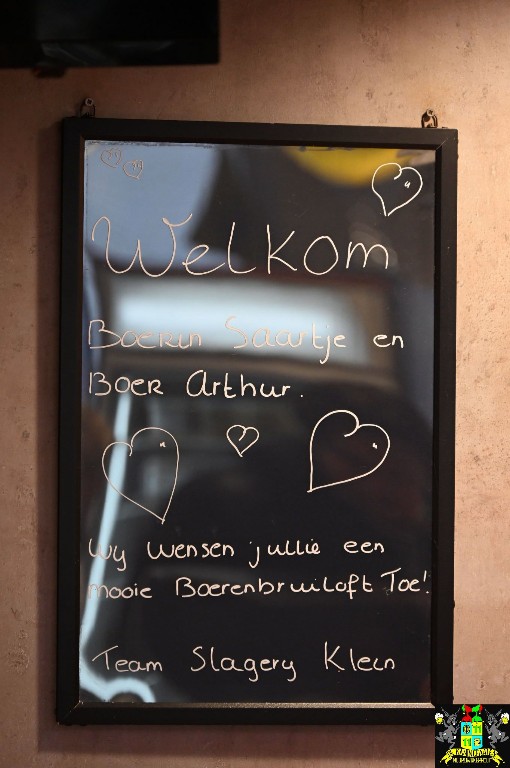 Welkom
Boerin Saartje en
Boer Arthur.
Wy wensen jullie een
mooie Boerenbruiloft Toe!
Team Slagery Klein